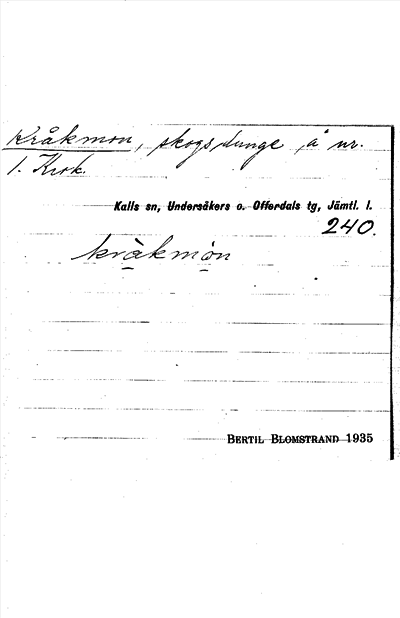 Kråkmon, skogsdunge å nr.
1. Krok.
Kalls sn, Undersåkers o. Offerdals tg, Jämtl. l.
240.
kråkmòn
BERTIL BLOMSTRAND 1935